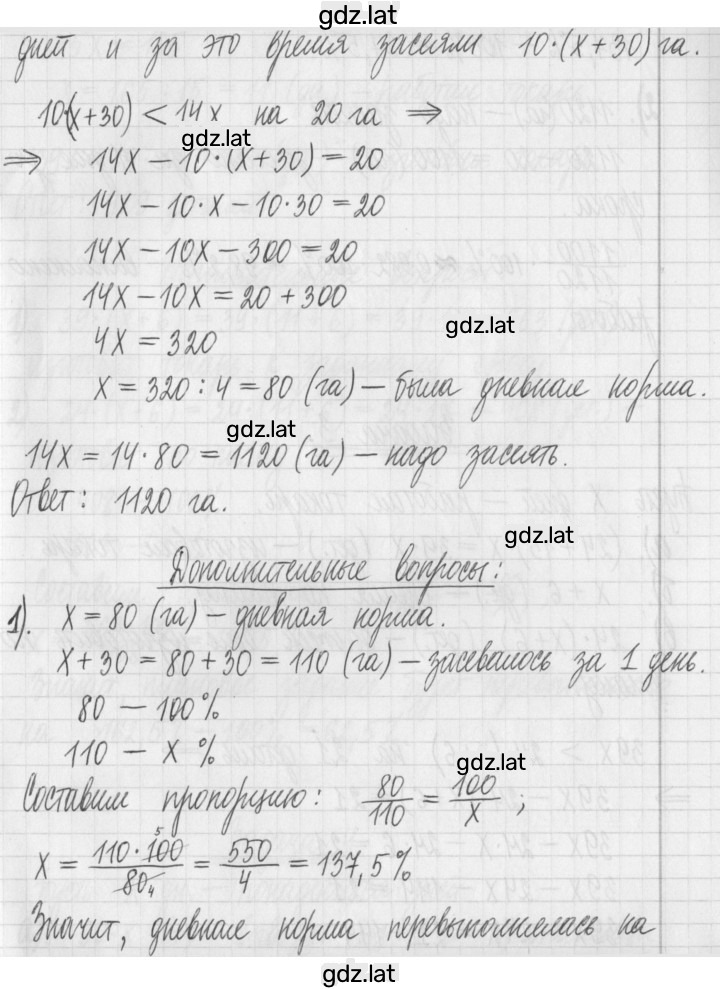 gdz.lat
дней и за это время засеяли 10·(x+30) га.
10(x+30) < 14x на 20 га ⇒
gdz.lat
⇒ 14x − 10·(x+30) = 20
14x − 10·x − 10·30 = 20
14x − 10x − 300 = 20
14x − 10x = 20 + 300
gdz.lat
4x = 320
x = 320 : 4 = 80 (га) — была дневная норма.
gdz.lat
14x = 14·80 = 1120 (га) — надо засеять.
Ответ: 1120 га.
gdz.lat
Дополнительные вопросы:
1). x = 80 (га) — дневная норма.
x + 30 = 80 + 30 = 110 (га) — засевалось за 1 день.
80 — 100%
110 — x %
gdz.lat
Составим пропорцию: 80/110 = 100/x ;
x = 110·100 5/80 4 = 550/4 = 137,5%
Значит, дневная норма перевыполнялась на
gdz.lat